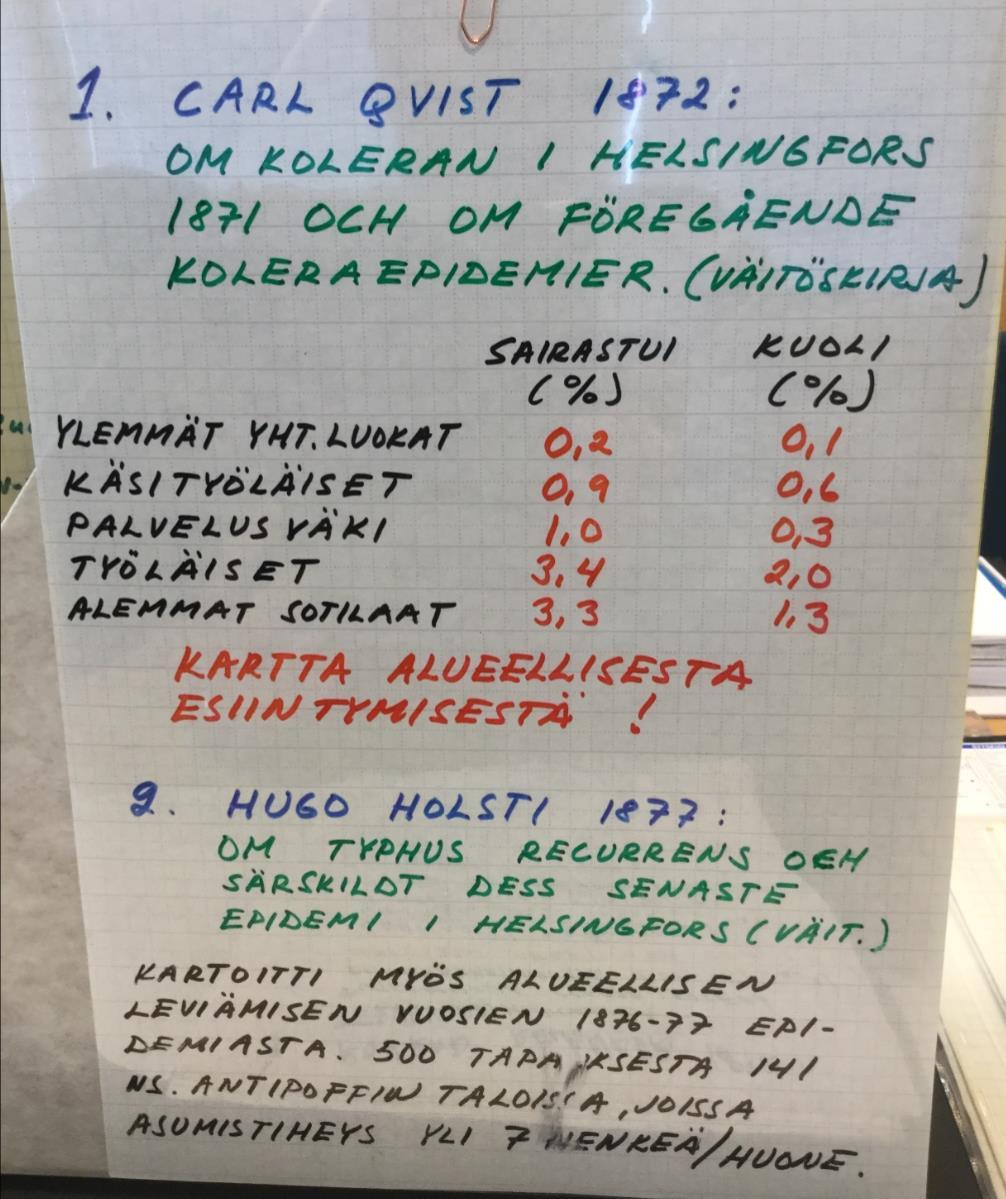 1. CARL QVIST 1872:
OM KOLERAN I HELSINGFORS
1871 OCH OM FÖREGÅENDE
KOLERAEPIDEMIER. (VÄITÖSKIRJA)
SAIRASTUI KUOLI
(%) (%)
YLEMMÄT YHT. LUOKAT 0,2 0,1
KÄSITYÖLÄISET 0,9 0,6
PALVELUSVÄKI 1,0 0,3
TYÖLÄISET 3,4 2,0
ALEMMAT SOTILAAT 3,3 1,3
KARTTA ALUEELLISESTA
ESIINTYMISESTÄ !
2. HUGO HOLSTI 1877:
OM TYPHUS RECURRENS OCH
SÄRSKILDT DESS SENASTE
EPIDEMI I HELSINGFORS (VÄIT.)
KARTOITTI MYÖS ALUEELLISEN
LEVIÄMISEN VUOSIEN 1876-77 EPI-
DEMIASTA. 500 TAPAUKSESTA 141
NS. ANTIPOFFIN TALOISSA, JOISSA
ASUMISTIHEYS YLI 7 HENKEÄ/HUONE.